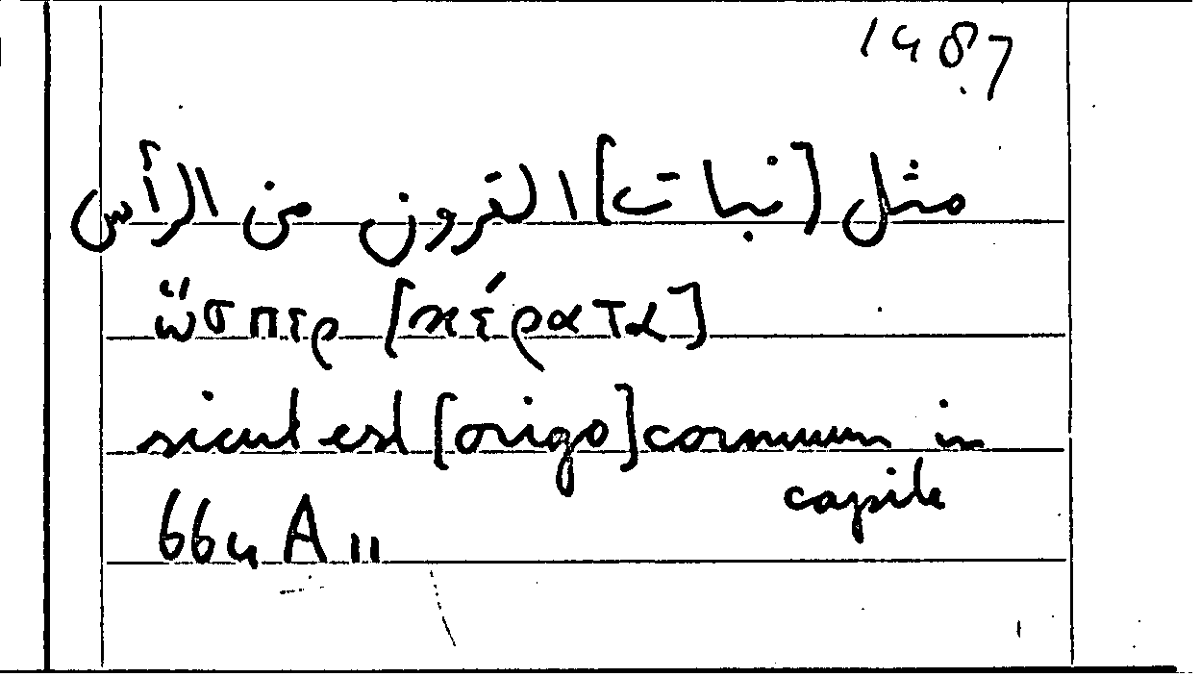 1487
مثل [نبات] القرون من الرأس
ὥσπερ [κέρατα]
sicut est [origo] cornuum in
capite
664 A 11